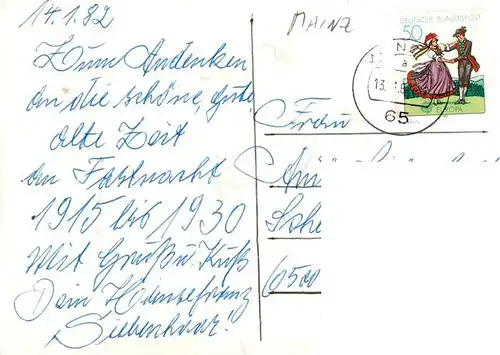 14.1.82
Zum Andenken
an die schöne, gute,
alte Zeit
an Fastnacht
1915 bis 1930
Mit Gruß u. Kuß
Dein Hansefranz
Siebenhaar"
MAINZ
DEUTSCHE BUNDESPOST
50
13.1.8
a
65
EUROPA
Frau
6500